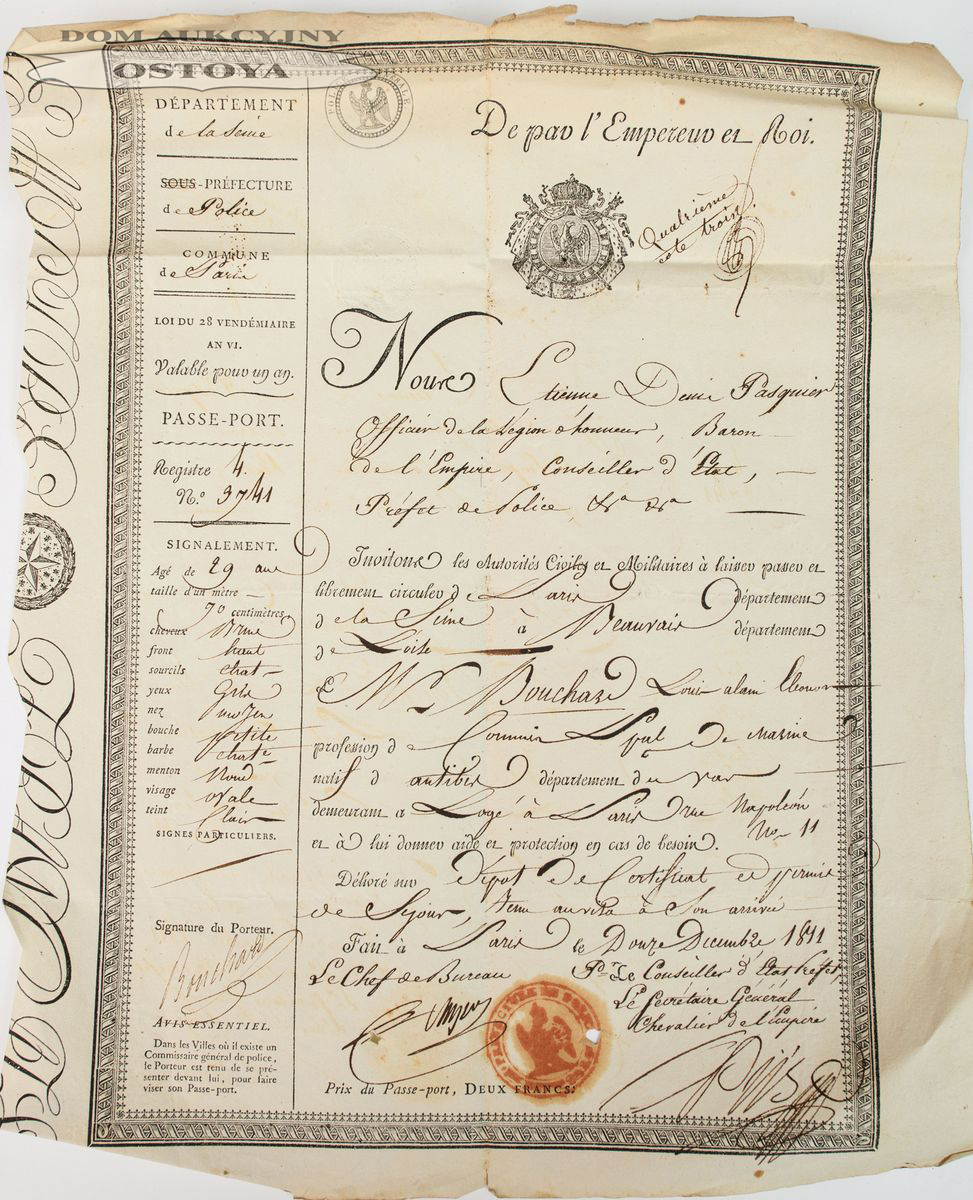 DOM AUKCYJNY
OSTOYA
DÉPARTEMENT
de la Seine
SOUS-PRÉFECTURE
de Police
COMMUNE
de Paris
LOI DU 28 VENDÉMIAIRE
AN VI.
Valable pour un an.
PASSE-PORT.
Registre 4.
N.º 3741
SIGNALEMENT.
Agé de 29 ans
taille d'un mètre
70 centimètres
cheveux Brune
front haut
sourcils chat-
yeux Gris
nez moyen
bouche petite
barbe chat-
menton Rond
visage ovale
teint Clair
SIGNES PARTICULIERS.
Signature du Porteur.
Bouchard
AVIS ESSENTIEL.
Dans les Villes où il existe un
Commissaire général de police,
le Porteur est tenu de se pré-
senter devant lui, pour faire
viser son Passe-port.
De par l'Empereur et Roi.
Quatrième
côte trois.
Nous Etienne Denis Pasquier
Officier de la Légion d'honneur, Baron
de l'Empire, Conseiller d'Etat,
Préfet de Police, &a &a
Invitons les Autorités Civiles et Militaires à laisser passer et
librement circuler de Paris département
de la Seine à Beauvais département
de Loise
Mr Bouchard Louis alain
profession de Commis Ppal de marine
natif d antibes département du var
demeurant a Logé à Paris rue Napoléon
No- 11
et à lui donner aide et protection en cas de besoin.
Délivré sur Dépot de Certificat et permis
de Séjour, tenu au visa à Son arrivée
Fait à Paris le Douze Decembre 1811
Le Chef de Bureau
Pr. Le Conseiller d'Etat Préfet,
Le Secrétaire Général
Chevalier de l'Empire
Prix du Passe-port, DEUX FRANCS.